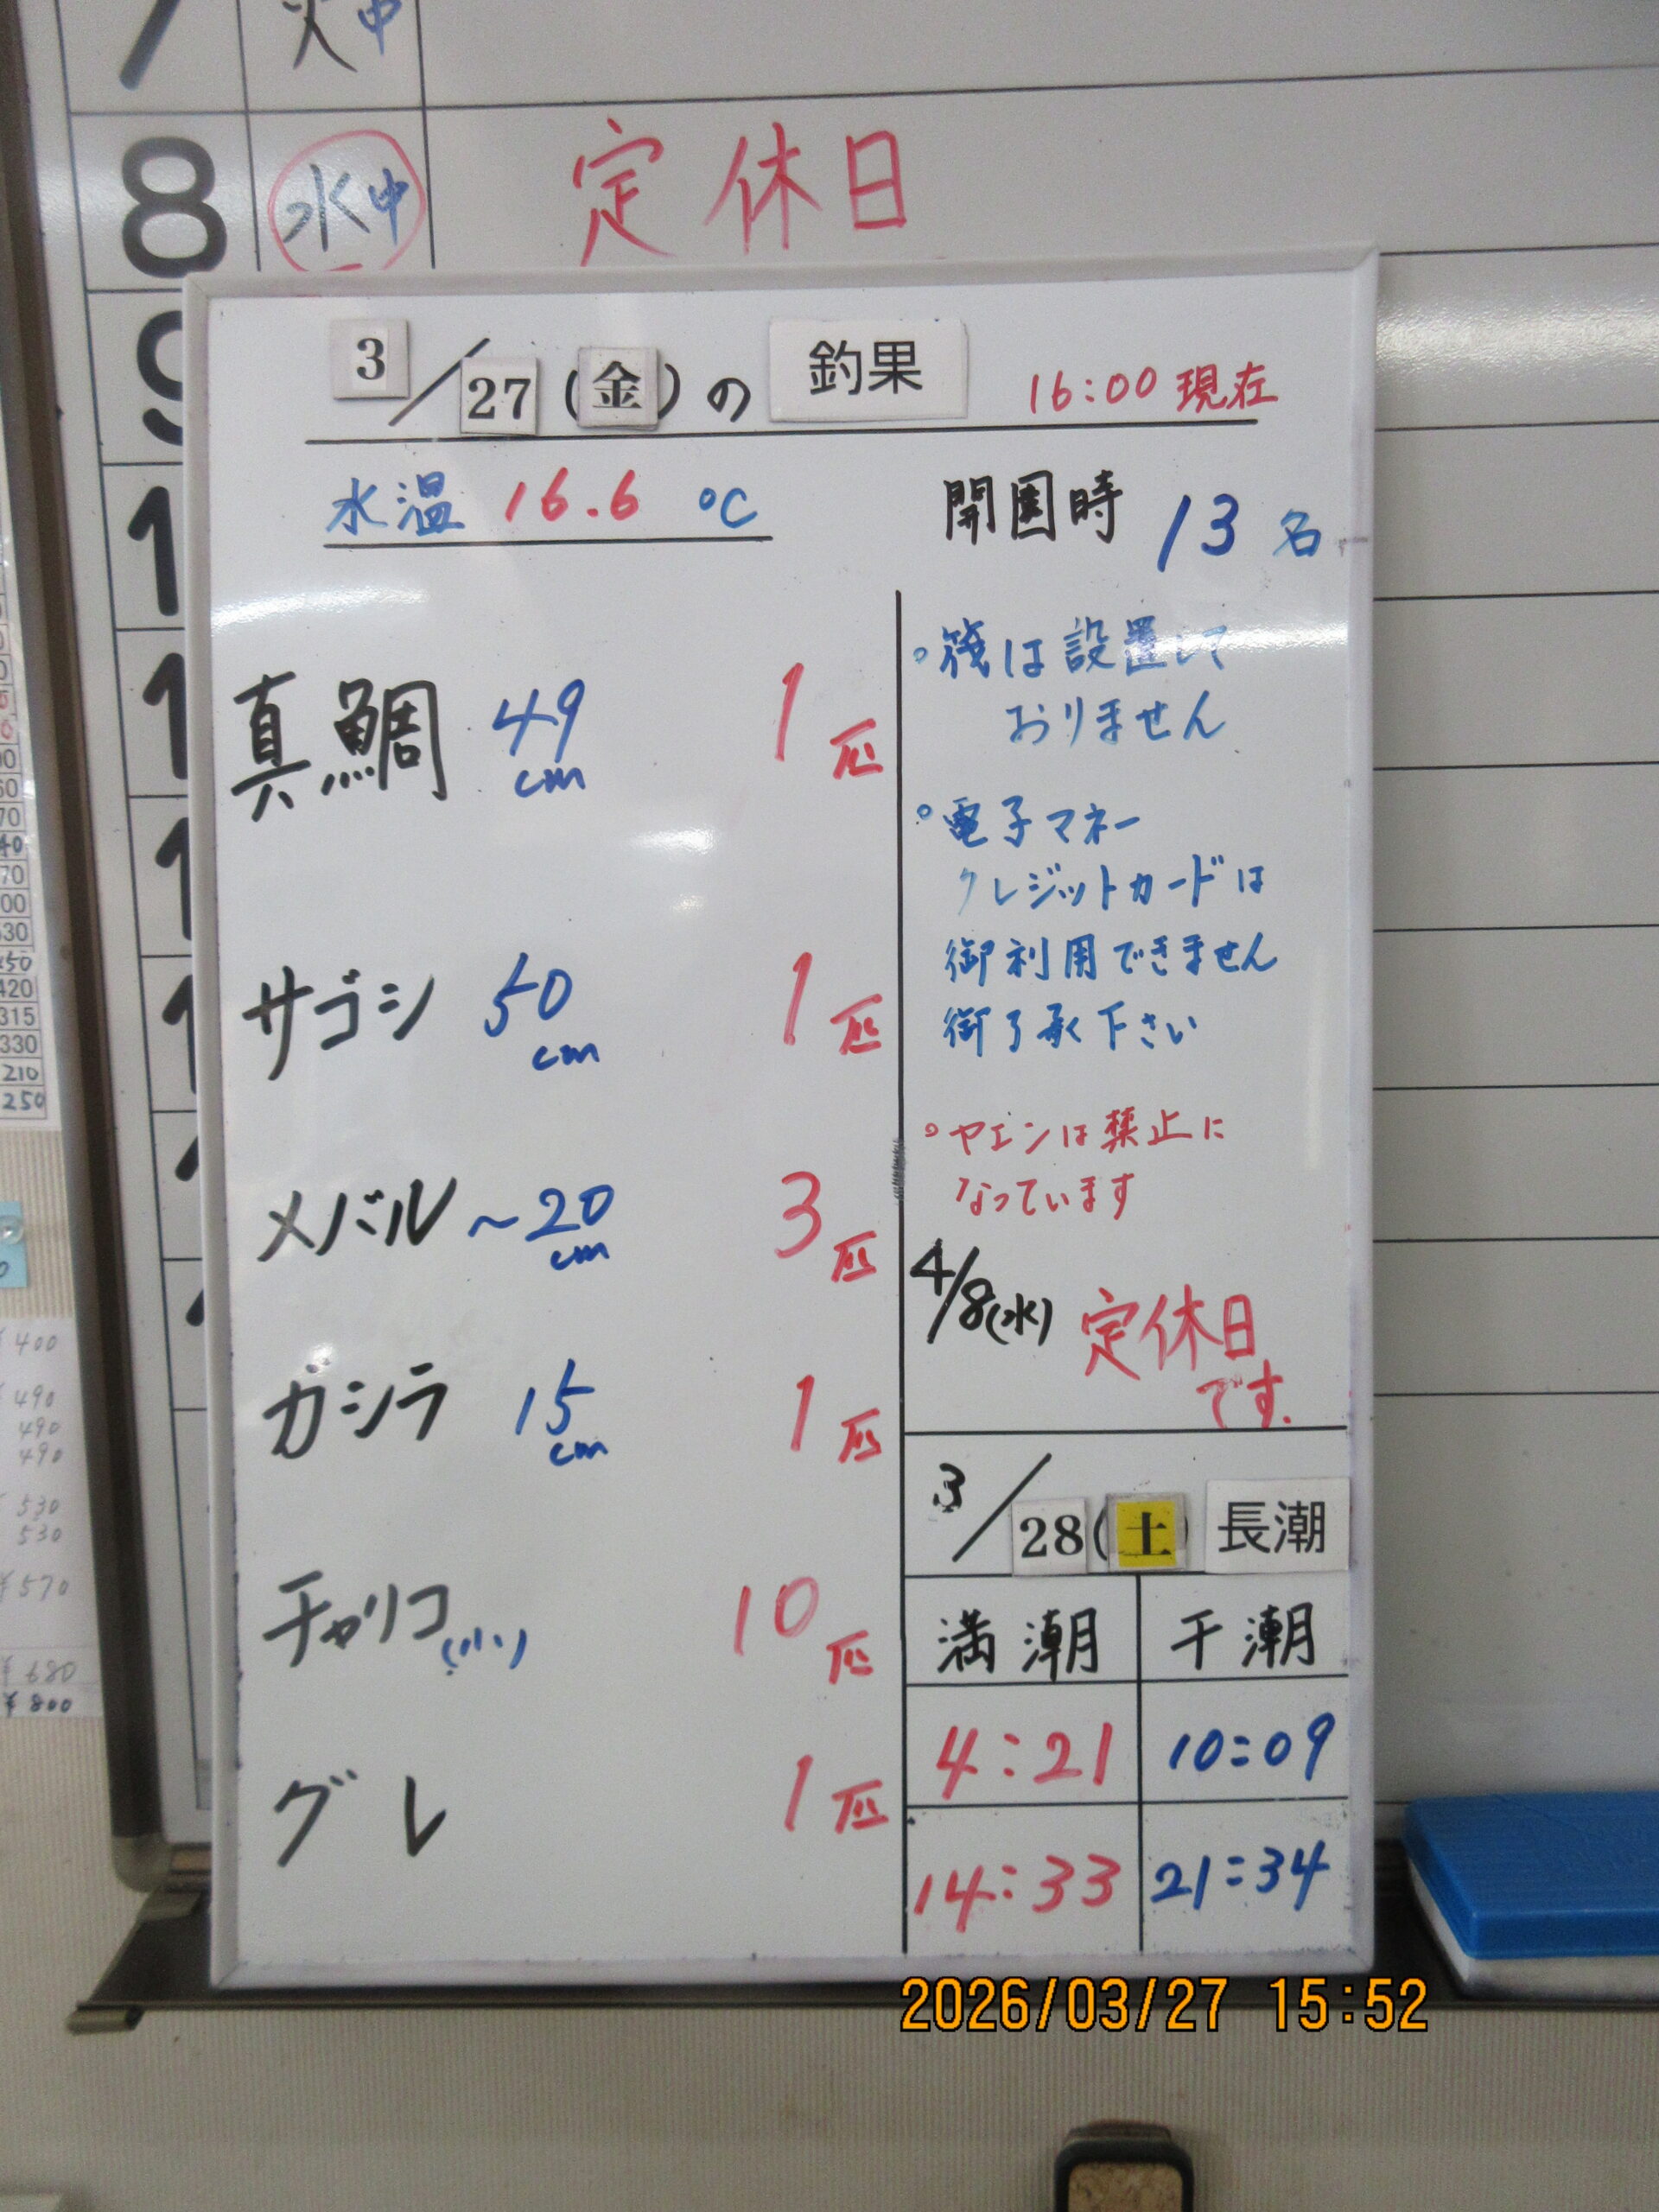 火中
8 水中 定休日
9
3/27(金)の 釣果 16:00 現在
水温 16.6 ℃
開園時 13 名
真鯛 49cm 1匹
サゴシ 50cm 1匹
メバル ~20cm 3匹
ガシラ 15cm 1匹
チャリコ(小) 10匹
グレ 1匹
。筏は設置して
おりません
。電子マネー
クレジットカードは
御利用できません
御了承下さい
。ヤエンは禁止に
なっています
4/8(水) 定休日
です.
3/28(土) 長潮
満潮 干潮
4:21 10:09
14:33 21:34
420
315
330
210
250
¥400
490
490
490
530
530
¥570
¥680
¥800
2026/03/27 15:52